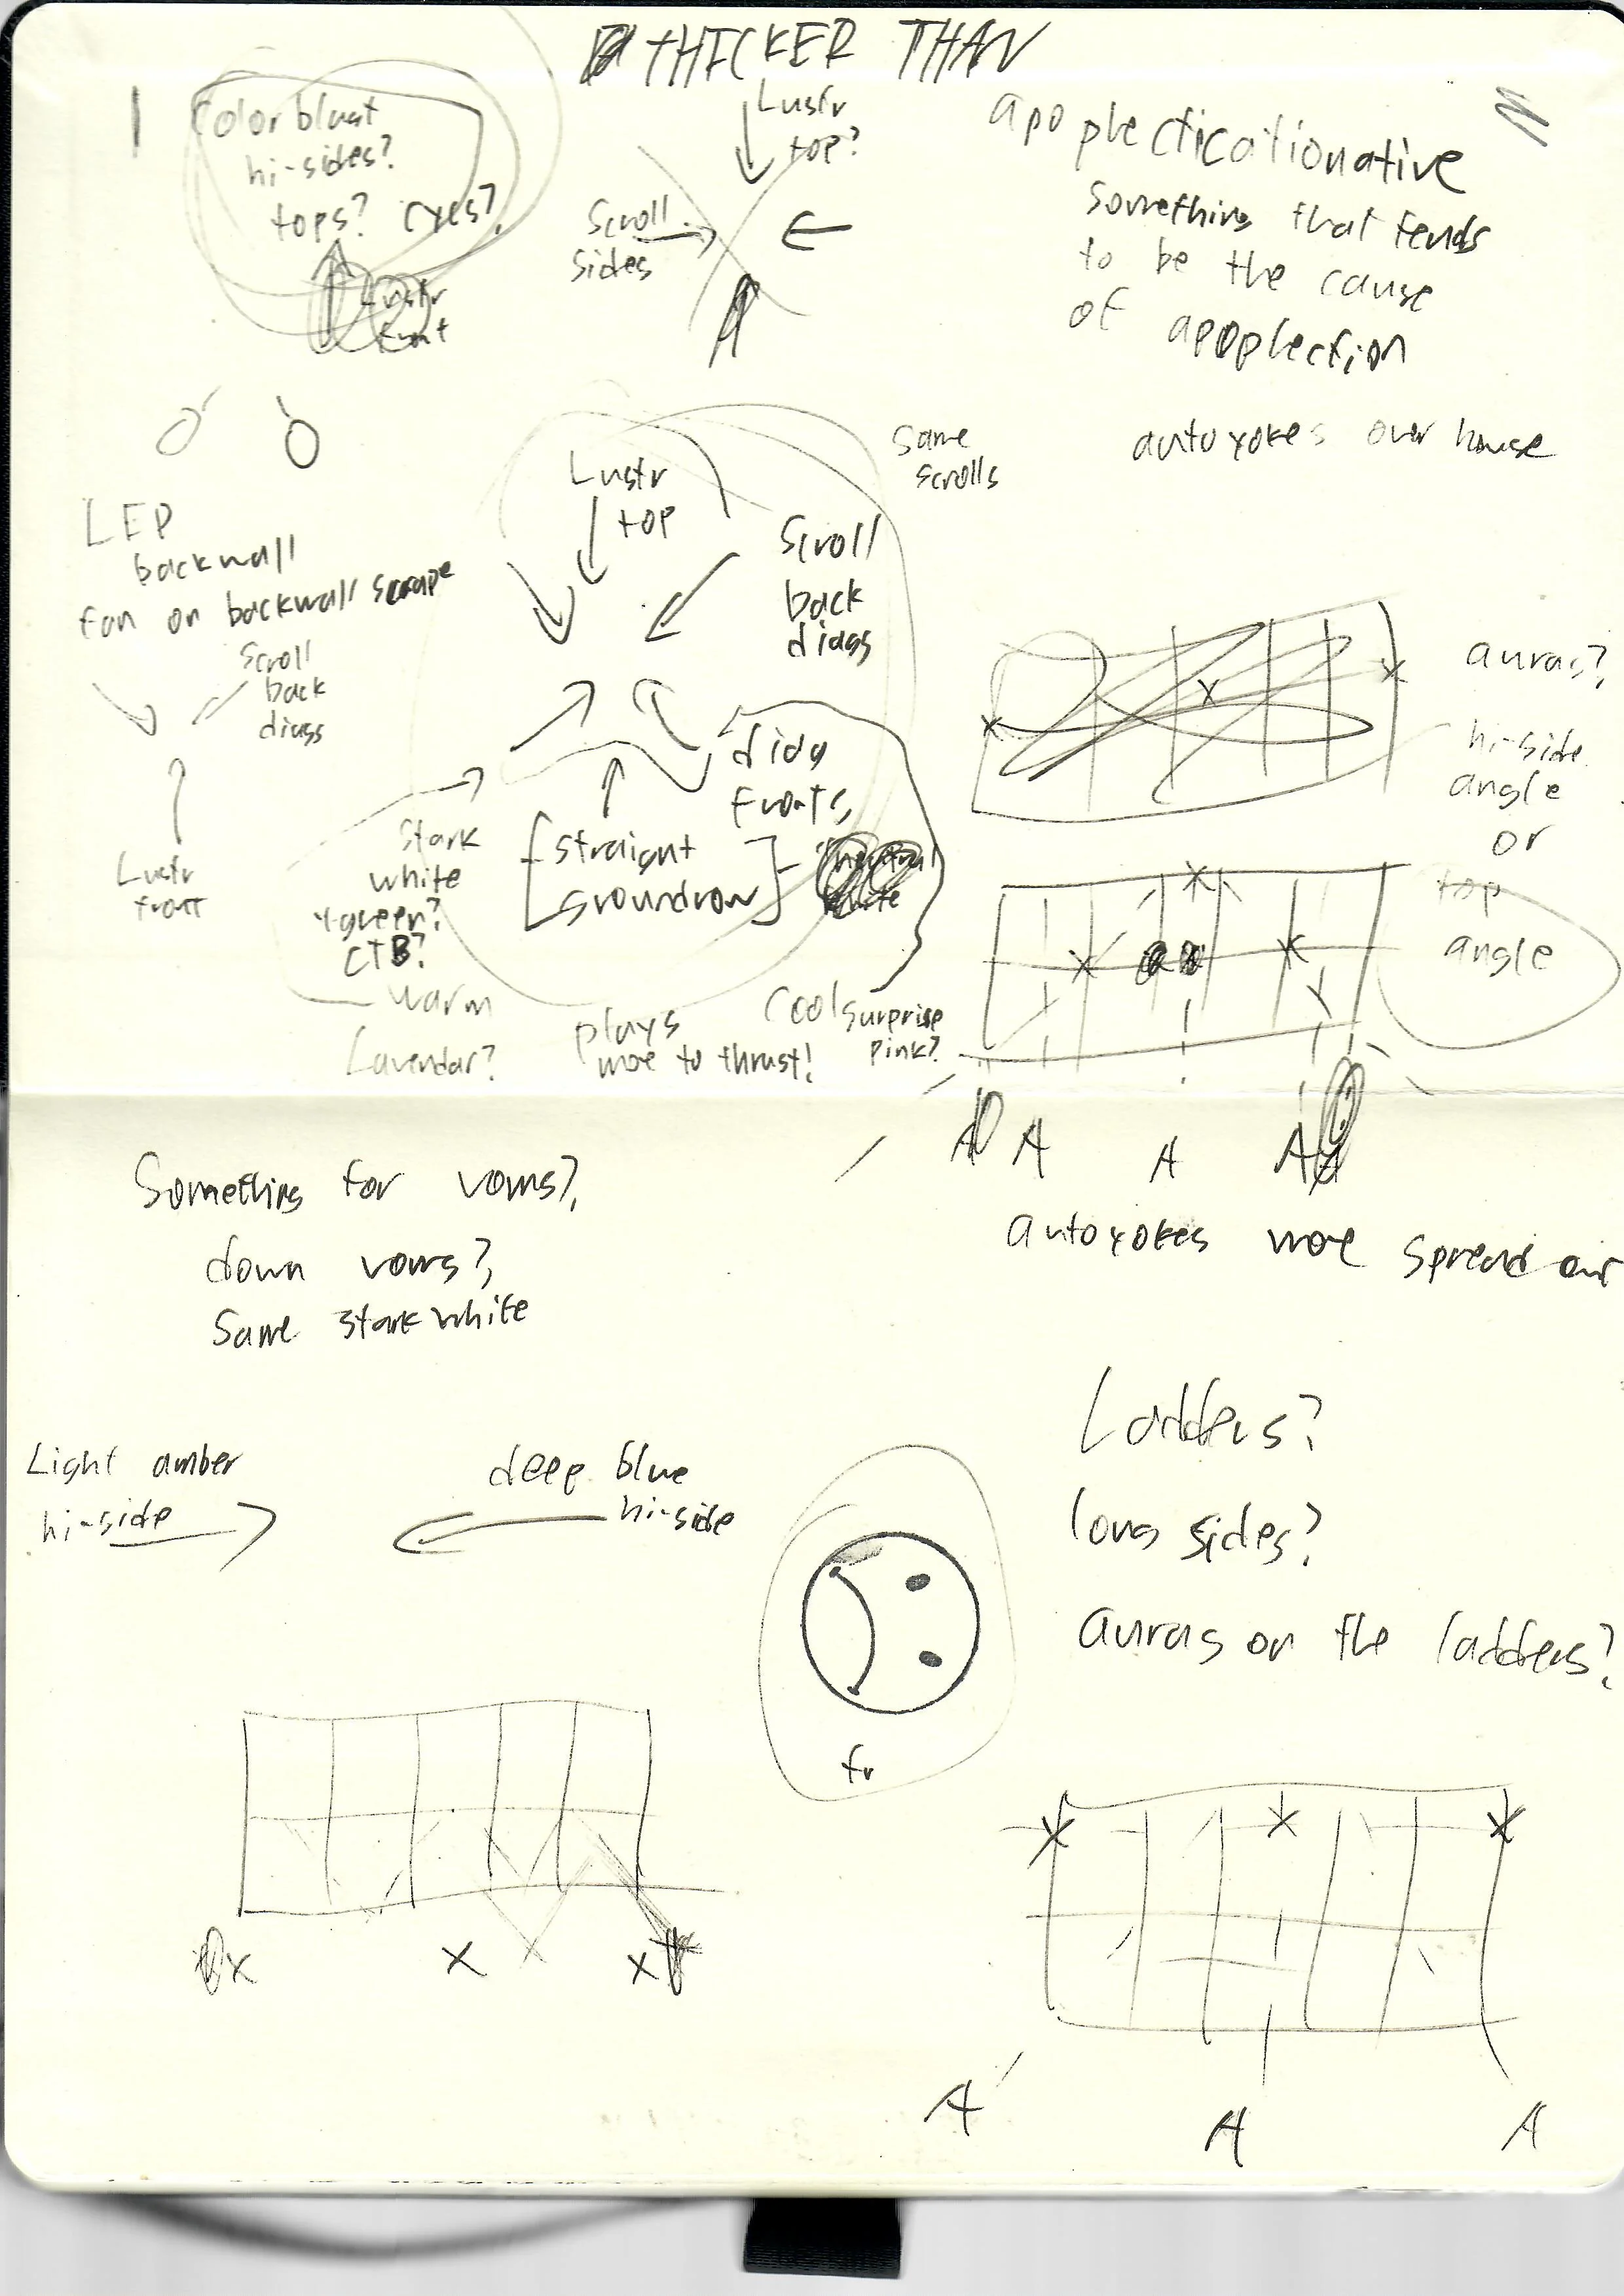 THICKER THAN
Color blast
hi-sides?
tops? cyes?
Lustr
front
Lustr
top?
Scroll
sides
apoplecticationative
something that tends
to be the cause
of apoplection
autoyokes over house
same
scrolls
Lustr
top
Scroll
back
diags
LEP
backwall
fan on backwall scrape
Scroll
back
diags
Lustr
front
diag
fronts
[straight
groundrow]
stark
white
y-green?
CTB?
warm
Lavendar?
plays
more to thrust!
Cool surprise
pink?
auras?
hi-side
angle
or
top
angle
A A A A
autoyokes more spread out
Something for voms?
down voms?
Same stark white
Light amber
hi-side
deep blue
hi-side
Ladders?
long sides?
auras on the ladders?
fr
x x x
A A A